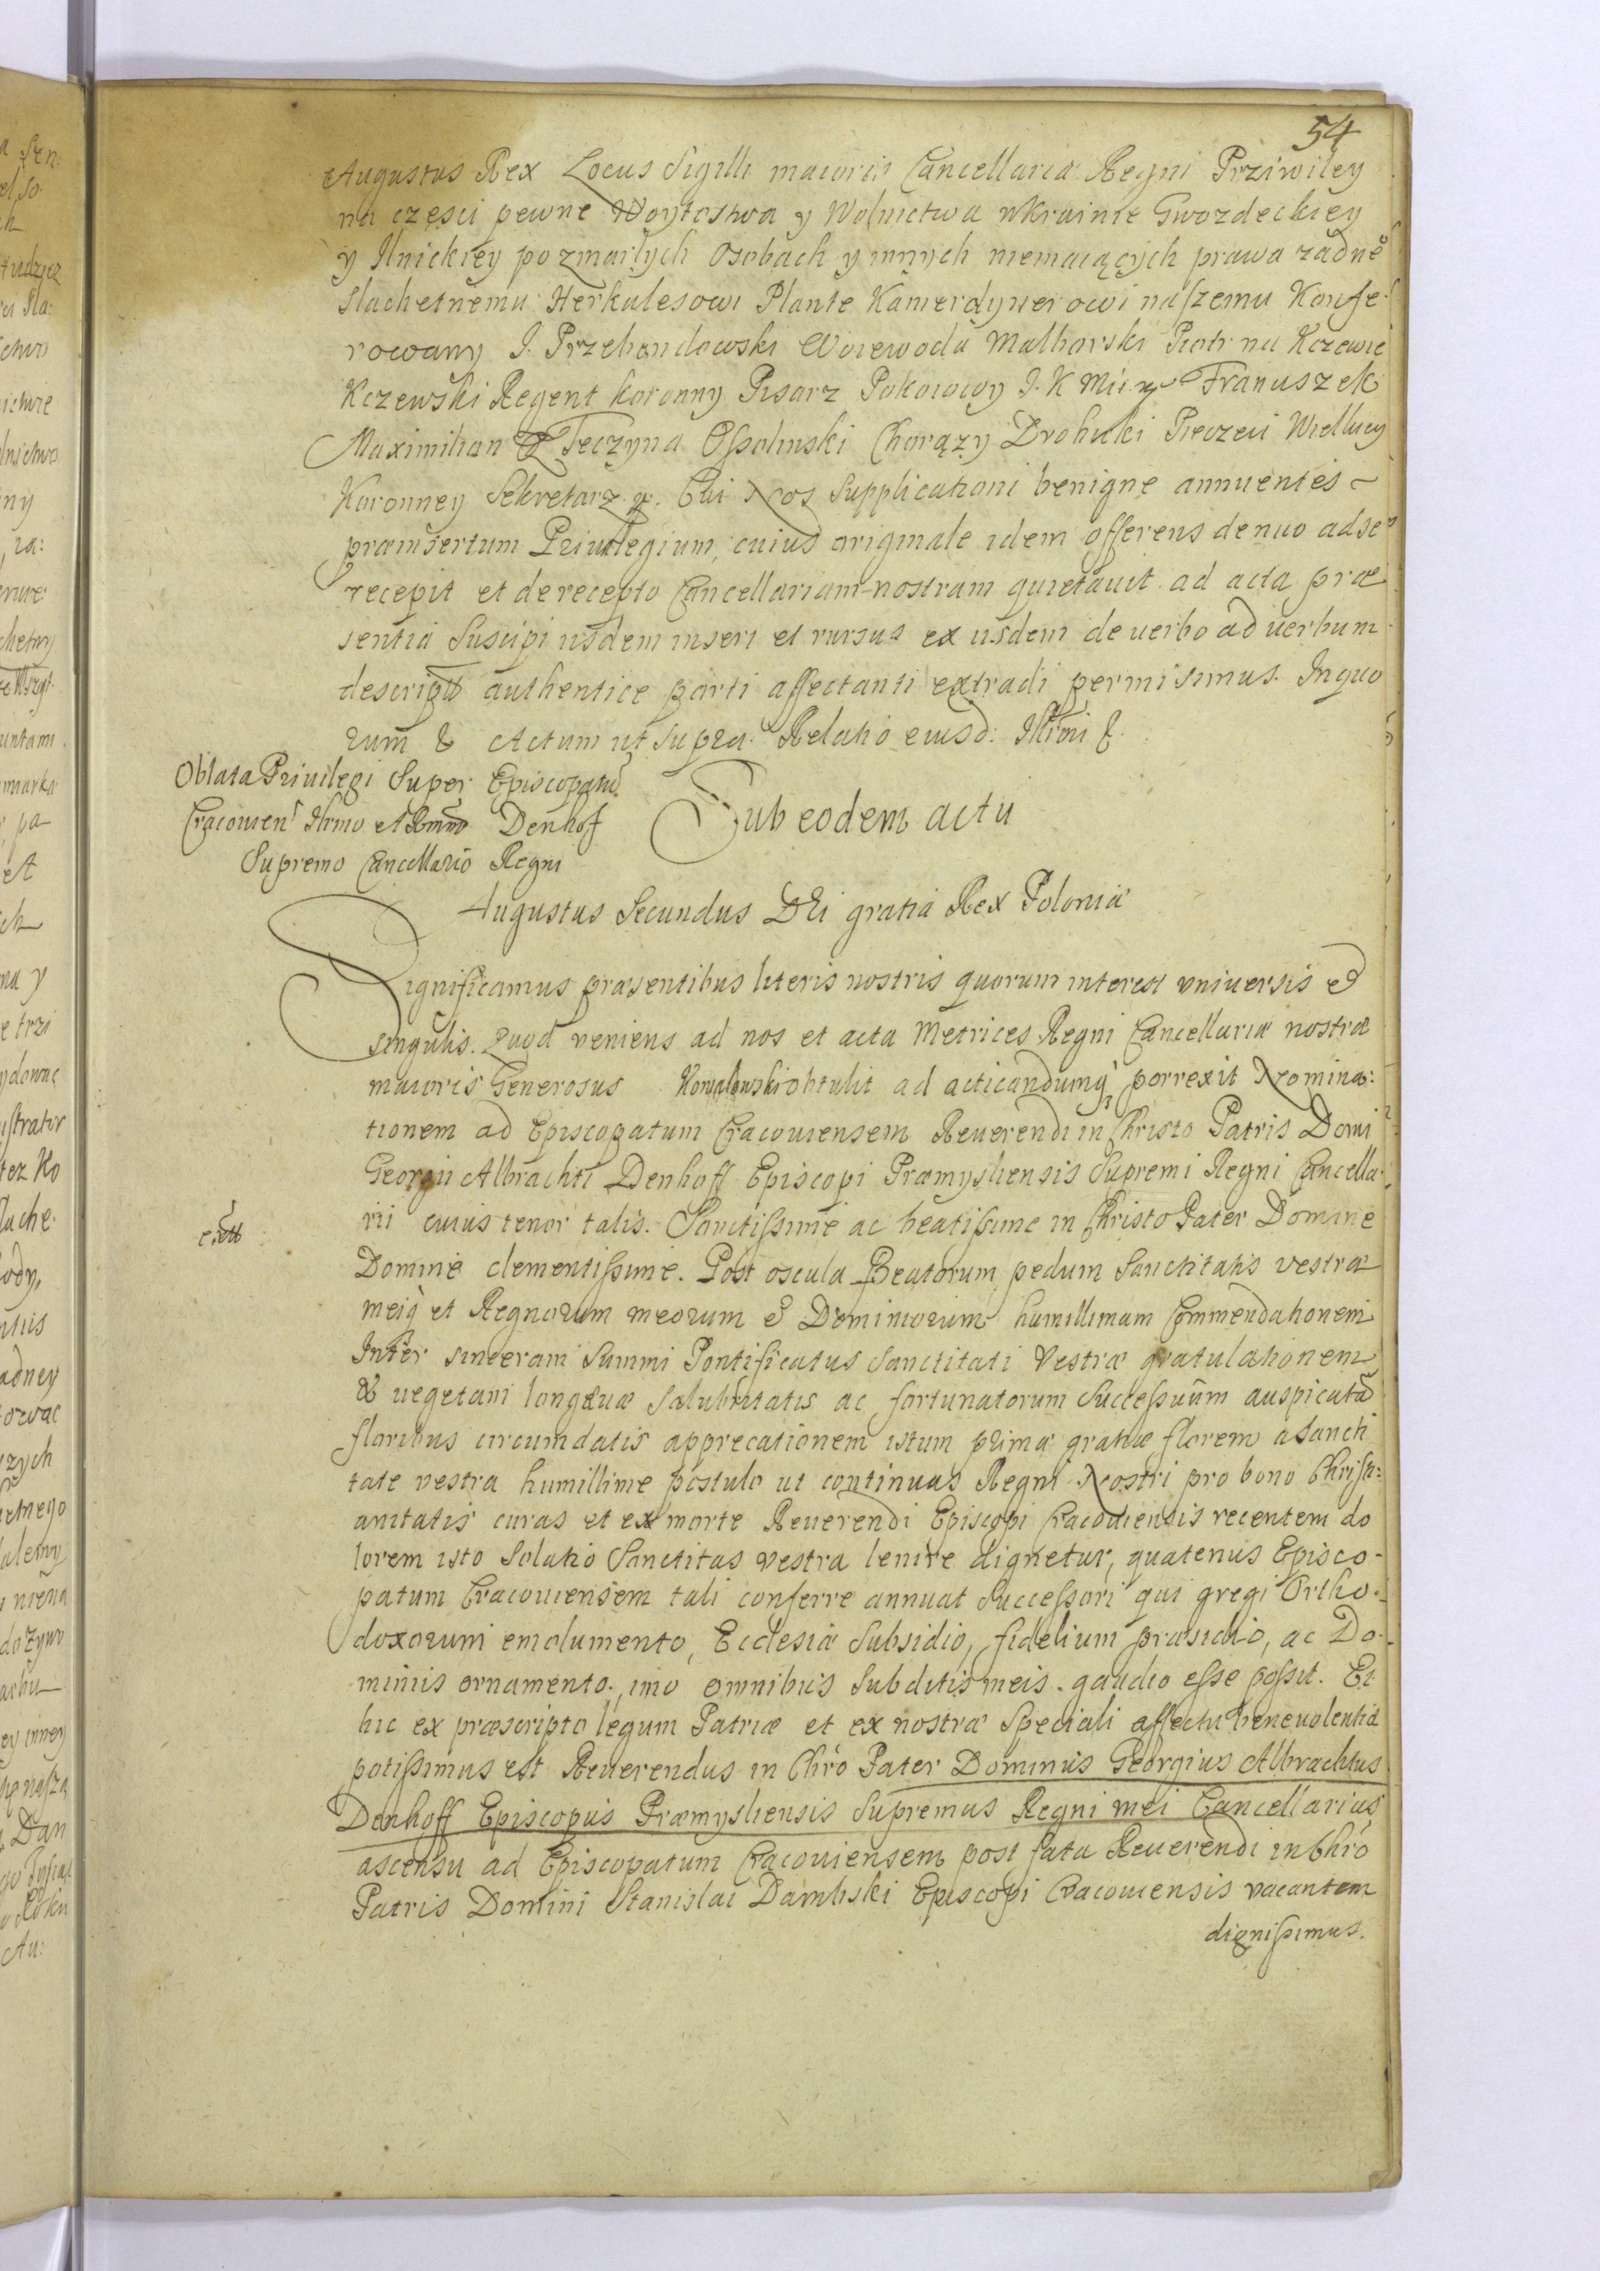 54
Augustus Rex Locus Sigilli maioris Cancellariæ Regni Przÿwiley
na części pewne Woytostwa y Wolnictwa wkrainie Gwozdeckiey
y Ilnickiey po zmarłych Osobach y innych niemaiących prawa zadne°
Slachetnemu Herkulesowi Plante Kamerdynerowi naszemu Konfe-
rowany J. Przebendowski Woiewoda Malborski Piotr na Kczewie
Kczewski Regent koronny Pisarz Pokoiowy J. K Mci Franuszek
Maximilian Z Teczyna Ossolinski Chorąży Drohicki Pieczęci Wielkiey
Koronney Sekretarz. Cui Nos Supplicationi benigne annuentes
præinsertum Privilegium, cuius originale idem offerens denuo ad se
recepit et de recepto Cancellariam nostram quietavit ad acta præ
sentia Suscipi iisdem inseri et rursus ex iisdem de verbo ad verbum
descriptū authentice parti affectanti extradi permisimus. In quo
rum & Actum ut supra. Relatio eiusd: Illrmi &.
Oblata Privilegi Super Episcopatū
Cracovien Illrmo et Rmo Denhof
Supremo Cancellario Regni
Sub eodem actu
Augustus Secundus DEi gratia Rex Poloniæ
Significamus præsentibus literis nostris quorum interest vniversis et
singulis. Quod veniens ad nos et acta Metrices Regni Cancellariæ nostræ
maioris Generosus Kowalewski obtulit ad acticandumq; porrexit Nomina:
tionem ad Episcopatum Cracoviensem Reuerendi in Christo Patris Domi
Georgii Albrachti Denhoff Episcopi Præmysliensis Supremi Regni Cancella-
rii cuius tenor talis. Sanctissime ac beatissime in Christo Pater Domine
Domine clementissime. Post oscula Beatorum pedum Sanctitatis vestræ
meiq; et Regnorum meorum & Dominiorum humillimam Commendationem
Inter sinceram Summi Pontificatus Sanctitati Vestræ gratulationem
& vegetam longævæ Salubritatis ac fortunatorum Successuum auspicatā
floribus circumdatis apprecationem istum primæ gratiæ florem a Sancti
tate vestra humillime postulo ut continuas Regni Nostri pro bono Christi:
anitatis curas et ex morte Reuerendi Episcopi Cracoviensis recentem do
lorem isto Solatio Sanctitas vestra lenire dignetur, quatenus Episco-
patum Cracoviensem tali conferre annuat Successori qui gregi Ortho-
doxorum emolumento, Ecclesiæ Subsidio, fidelium præsidio, ac Do-
miniis ornamento, imo omnibus Subditis meis gaudio esse possit. Et
hic ex præscripto legum Patriæ et ex nostræ Speciali affectu benevolentiæ
potissimus est Reuerendus in Chro Pater Dominus Georgius Albrachtus
Denhoff Episcopus Præmysliensis Supremus Regni mei Cancellarius
ascensu ad Episcopatum Cracoviensem post fata Reuerendi in Chro
Patris Domini Stanislai Dambski Episcopi Cracoviensis vacantem
dignissimus.